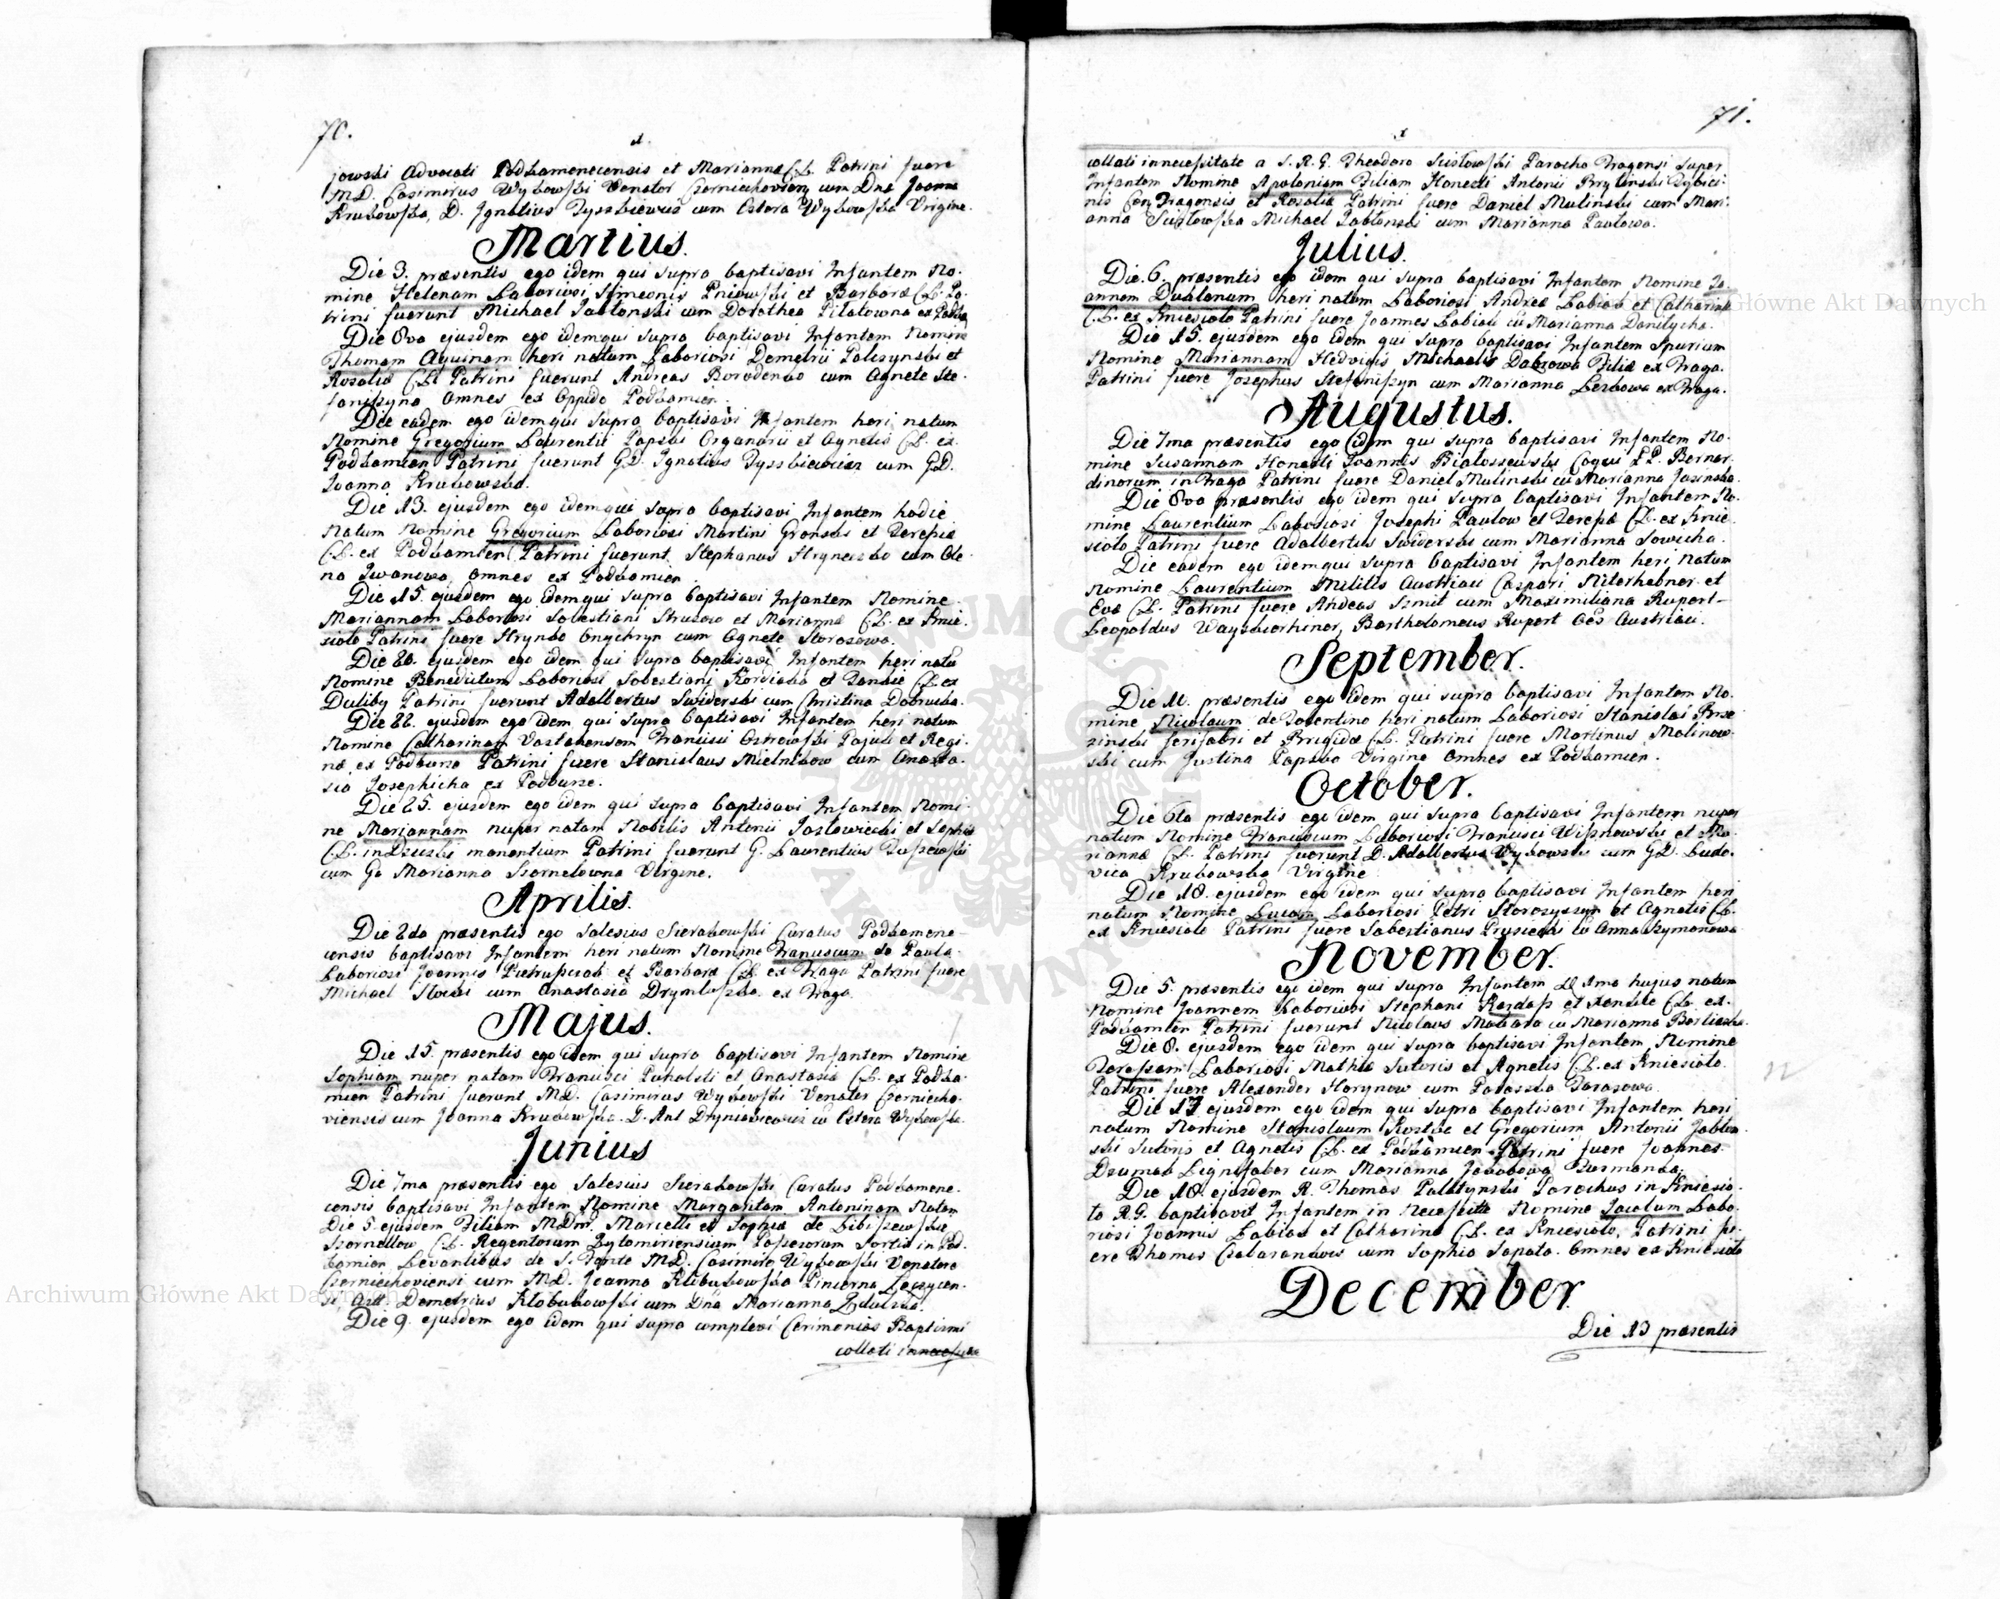 70.
jowski Advocati Podkamenecensis et Mariannæ CL. Patrini fuere
M.D. Casimirus Wybowski Venator Czerniechovien cum Dna Joanna
Krubowska, D. Ignatius Dyszkiewicz cum Estera Wybowska Virgine.
Martius.
Die 3. præsentis ego idem qui supra baptisavi Infantem No-
mine Helenam Laboriosi Simeonis Pniowski et Barbaræ CL. Pa-
trini fuerunt Michael Jabłonski cum Dorothea Pilatowna ex Podka
Die 8va ejusdem ego idem qui supra baptisavi Infantem Nomine
Thomam Aquinam heri natum Laboriosi Demetrii Palczynski et
Rosaliæ CL. Patrini fuerunt Andreas Borodenko cum Agnete Ste-
faniszyna Omnes ex Oppido Podkamien.
Die eadem ego idem qui supra baptisavi Infantem heri natum
Nomine Gregorium Laurentii Papski Organarii et Agnetis CL. ex
Podkamien Patrini fuerunt GD. Ignatius Dyszkiewicz cum GD.
Joanna Krubowska.
Die 13. ejusdem ego idem qui supra baptisavi Infantem hodie
natum Nomine Gregorium Laboriosi Martini Gronski et Teresiæ
CL. ex Podkamien Patrini fuerunt Stephanus Hryneczko cum Ole-
na Iwanowa, omnes ex Podkamien.
Die 15. ejusdem ego idem qui supra baptisavi Infantem Nomine
Mariannam Laboriosi Sebestiani Strusow et Mariannæ CL. ex Knie-
sioło Patrini fuere Hrynko Onychryn cum Agnete Storozowa.
Die 20. ejusdem ego idem qui supra baptisavi Infantem heri natu
Nomine Benedictum Laboriosi Sebestiani Kordiaka et CL. ex
Duliby Patrini fuerunt Adalbertus Swiderski cum Christina Dobrucka.
Die 22. ejusdem ego idem qui supra baptisavi Infantem heri natum
Nomine Catharinam Francisci Ostrowski et Regi-
næ ex Podburze Patrini fuere Stanislaus Mielnikow cum Anasta-
sia Josephicha ex Podburze.
Die 25. ejusdem ego idem qui supra baptisavi Infantem Nomi-
ne Mariannam nuper natam Nobilis Antonii Jazłowiecki et Sophiæ
CL. in manentium Patrini fuerunt G. Laurentius
cum Ga Marianna Szornelowna Virgine.
Aprilis.
Die 2da præsentis ego Salesius Sierakowski Curatus Podkamene-
censis baptisavi Infantem heri natum Nomine Franciscum de Paula
Laboriosi Joannis et Barbaræ CL. ex Fraga Patrini fuere
Michael Slocki cum Anastasia ex Fraga.
Majus.
Die 15. præsentis ego idem qui supra baptisavi Infantem Nomine
Sophiam nuper natam Francisci Puhalski et Anastasiæ CL. ex Podka-
mien Patrini fuerunt M.D. Casimirus Wybowski Venator Czerniecho-
viensis cum Joanna Krubowska. D. Ant Dtyniewicz cu Estera Wybowska.
Junius
Die 7ma præsentis ego Salesius Sierakowski Curatus Podkamene-
censis baptisavi Infantem Nomine Margaritam Antoninam Natam
Die 5. ejusdem Filiam MDnr. Marcelli et Sophiæ de
Szornellow CL. Regentorum Zytomiriensium Possesorum Sortis in Pod-
kamien Levantibus de S. Fonte M.D. Casimiro Wybowski Venatore
Czerniechoviensi cum M.D. Joanna Kłobukowska Pincerna Leczycen-
si, Demetrius Kłobukowski cum Dna Marianna
Die 9. ejusdem ego idem qui supra complevi Cerimonias Baptismi
collati innecessita
71.
collati innecessitate a S.R.G. Theodoro Scisłowski Parocho Fragensi super
Infantem Nomine Apoloniam Filiam Honesti Antonii Brylinski
nis Fragensis et Rosaliæ Patrini fuere Daniel Mulinski cum Mari-
anna Scisłowska Michael Jabłonski cum Marianna Pawłowa.
Julius.
Die 6. præsentis ego idem qui supra baptisavi Infantem Nomine Jo-
annem Dualanum heri natum Laboriosi Andreæ Labiak et Catharinæ
CL. ex Kniesioło Patrini fuere Joannes Labiak cu Marianna Danilycha.
Die 15. ejusdem ego idem qui supra baptisavi Infantem Spurium
Nomine Mariannam Hedvigis Michaelis Dabrowa Filiæ ex Fraga.
Patrini fuere Josephus Stefaniszyn cum Marianna Lesbowa ex Fraga.
Augustus.
Die 7ma præsentis ego idem qui supra baptisavi Infantem No-
mine Susannam Honesti Joannis Białoszewski Coqui P.P. Bernar-
dinorum in Fraga Patrini fuere Daniel Mulinski cu Marianna Jasinska.
Die 8va præsentis ego idem qui supra baptisavi Infantem No-
mine Laurentium Laboriosi Josephi Pawłow et Teresæ CL. ex Knie-
sioło Patrini fuere Adalbertus Swiderski cum Marianna Sowicha.
Die eadem ego idem qui supra baptisavi Infantem heri natum
Nomine Laurentium Militis Austriac Caspari Niterhebner et
Evæ CL. Patrini fuere Andeas Szmit cum Maximiliana Rupert-
Leopoldus Bartholomeus Rupert Austriaci.
September.
Die 11. præsentis ego idem qui supra baptisavi Infantem No-
mine Nicolaum de Tolentino heri natum Laboriosi Stanislai Brze-
zinski ferifabri et Brigidæ CL. Patrini fuere Martinus Malinow-
ski cum Justina Papska Virgine Omnes ex Podkamien.
October.
Die 6ta præsentis ego idem qui supra baptisavi Infantem nuper
natum Nomine Franciscum Laboriosi Francisci Wisznowski et Ma-
riannæ CL. Patrini fuerunt D. Adalbertus Wybowski cum GD. Ludo-
vica Krubowska Virgine
Die 18. ejusdem ego idem qui supra baptisavi Infantem heri
natum Nomine Lucam Laboriosi Petri Storozyszyn et Agnetis CL.
ex Kniesioło Patrini fuere Sabestianus cu Anna Szymanowa
November.
Die 5. præsentis ego idem qui supra Infantem d 1ma hujus natum
Nomine Joannem Laboriosi Stephani et CL. ex
Podkamien Patrini fuerunt Nicolaus Makara cu Marianna
Die 8. ejusdem ego idem qui supra baptisavi Infantem, Nomine
Teressam Laboriosi Mathiæ Sutoris et Agnetis CL. ex Kniesioło
Patrini fuere Alexander Horynow cum Paraska Tarasowa.
Die 17 ejusdem ego idem qui supra baptisavi Infantem heri
natum Nomine Stanislaum Kostæ et Gregorium Antonii Jabłon-
ski Sutoris et Agnetis CL. ex Podkamien Patrini fuere Joannes
Dzumak Lignifaber cum Marianna Jakobowa
Die 18. ejusdem R. Thomas Palatynski Parochus in Kniesio-
ło R.G. baptisavit Infantem in Necessitte Nomine Jacobum Labo-
riosi Joannis Labiak et Catharinæ CL. ex Kniesioło, Patrini fu-
ere Thomas cum Sophia Sapata. Omnes ex Kniesioło
December
Die 13 præsentis
Archiwum Główne Akt Dawnych
Archiwum Główne Akt Dawnych
ARCHIWUM GŁÓWNE AKT DAWNYCH